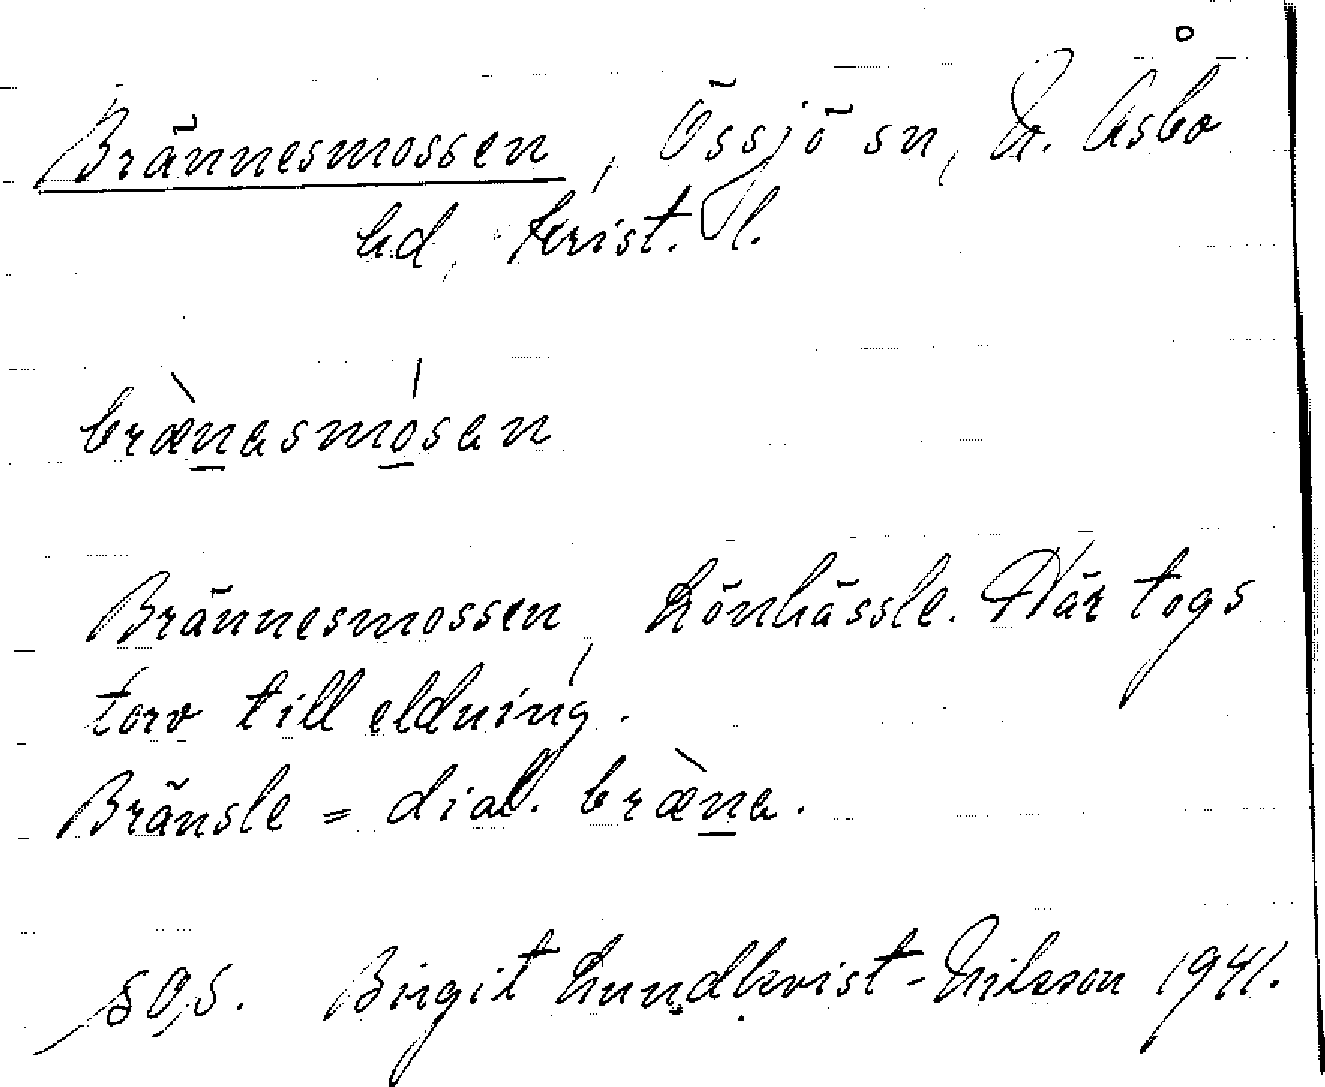 Brännesmossen, Össjö sn, N. Åsbo
hd, Krist. l.
bræ̀nasmósan
Brännesmossen, Lönhässle. Här togs
torv till eldning.
Bränsle = dial. bræ̀na.
Birgit Lundkvist-Nilsson 1941.